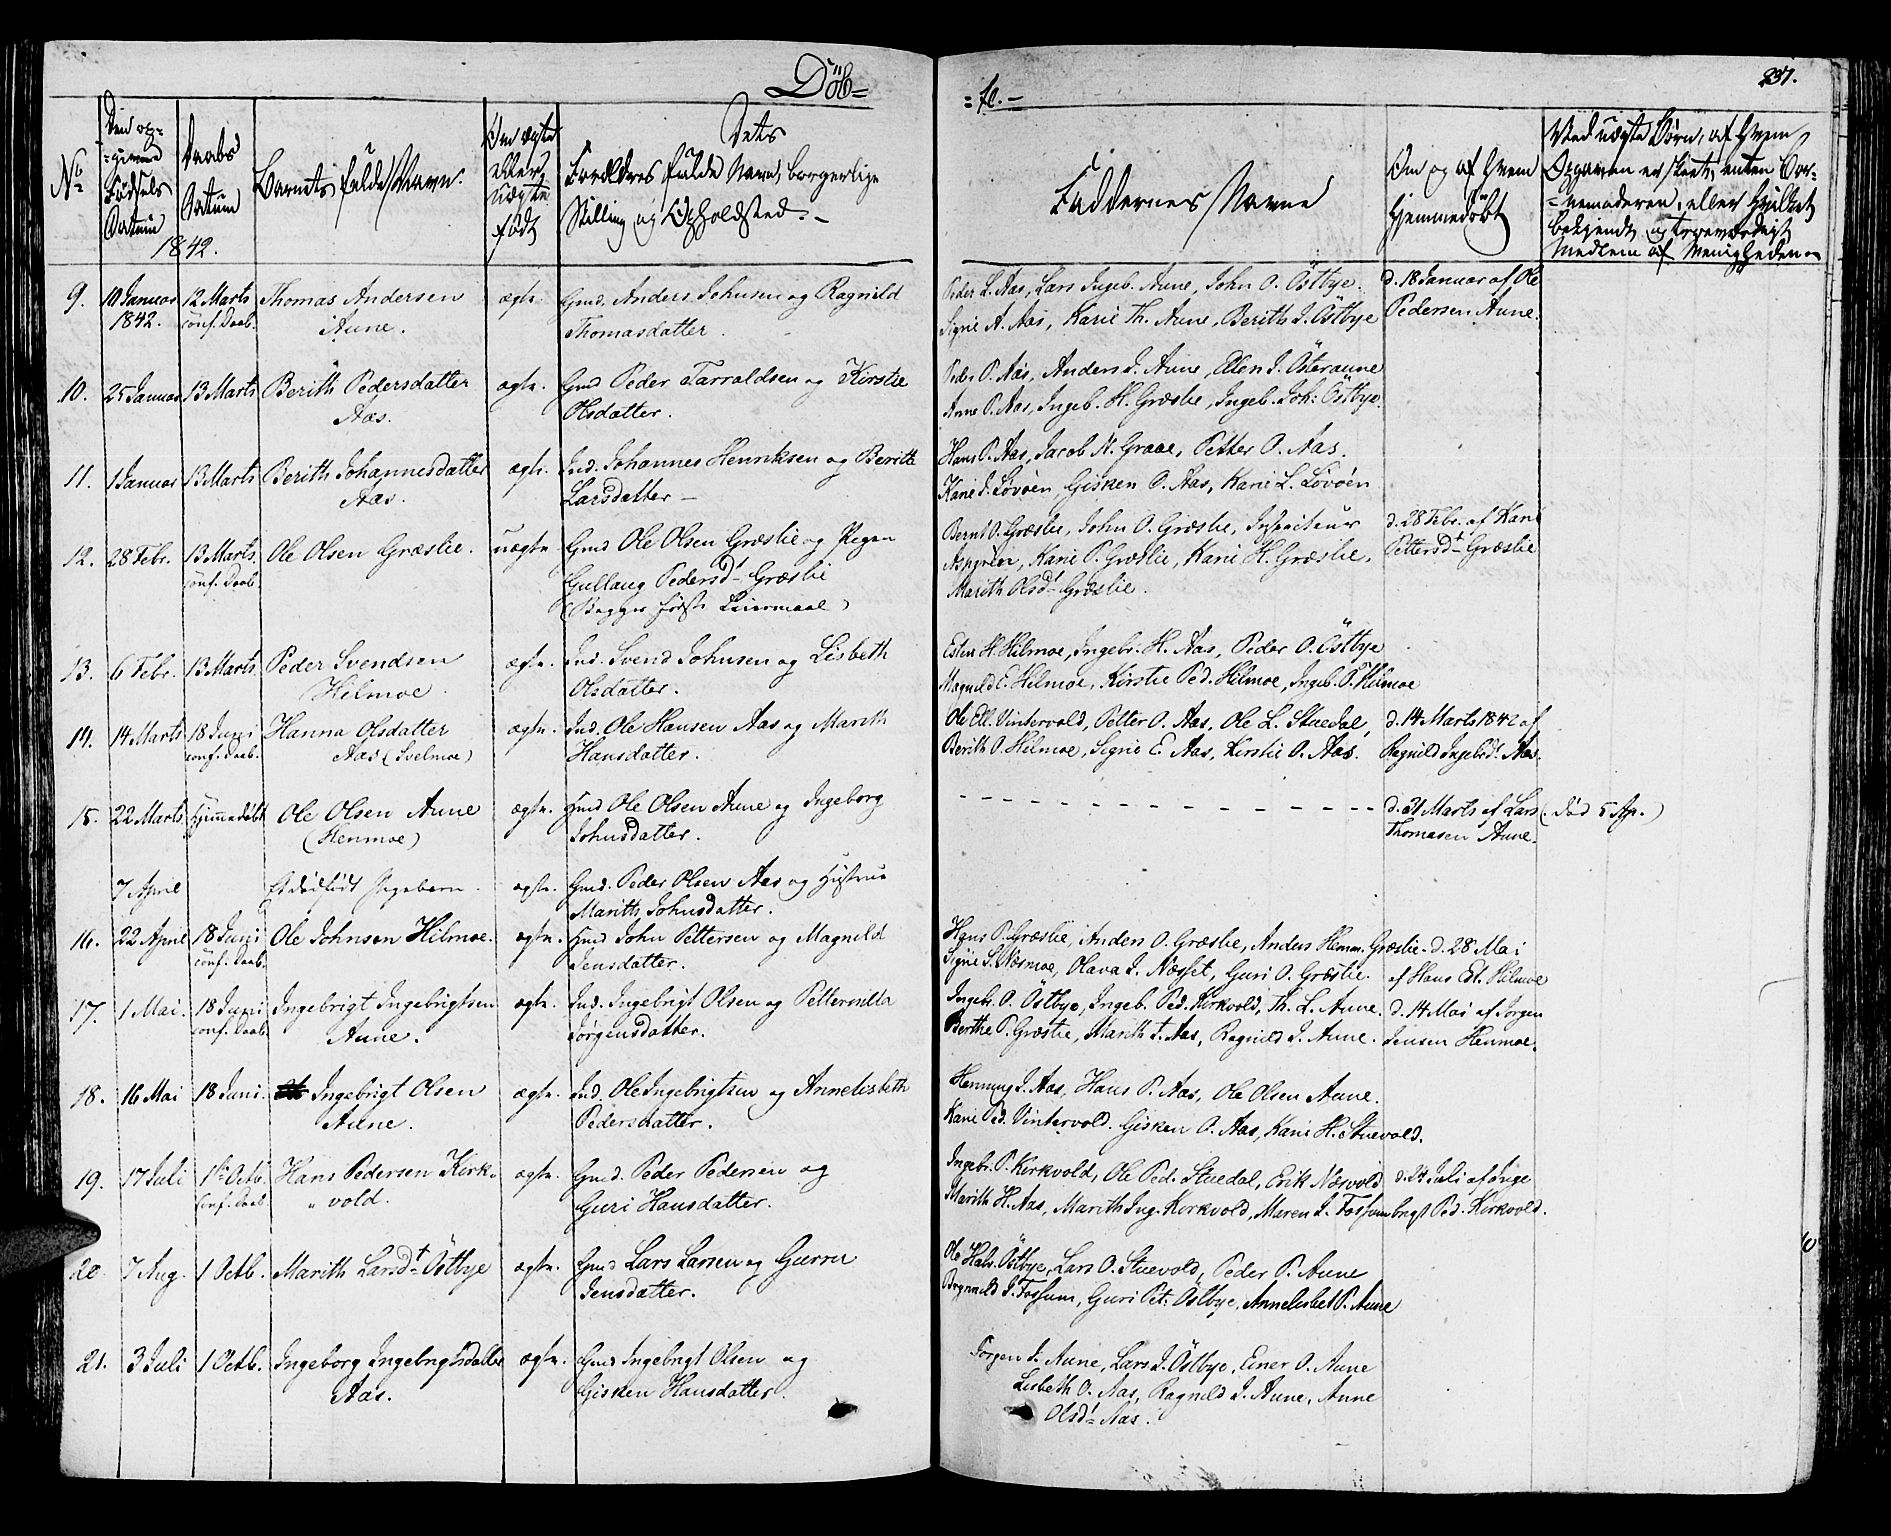 Döb=
=te.-
237.
No
Den op=
=givne
Födsels
Datum
Daabs
Datum
1842.
Barnets fulde Navn.
Om ægte
eller
uægte
födt
Dets
Forældres fulde Navn, borgerlige
Stilling og Opholdsted.-
Faddernes Navne
Om og af hvem
hjemmedöbt
Ved uægte Börn, af hvem
Opgaven er skeet, enten Bar=
=nemoderen, eller hvilket
bekjendt og troværdigt
Medlem af Menigheden
9. 10 Januar 12 Marts Thomas Andersen ægte. Gmd. Anders Johnsen og Ragnild Peder L. Aas, Lars Ingeb. Aune, John O. Östbye. d. 18 Januar af Ole
1842. conf. Daab. Aune. Thomasdatter. Signe A. Aas, Karie Th. Aune, Berith J. Östbye Pedersen Aune.
10. 25 Januar 13 Marts Berith Pedersdatter ægte. Gmd Peder Tarraldsen og Kirstie Peder P. Aas, Anders J. Aune, Ellen J. Österaune
Aas. Olsdatter. Anne P. Aas, Ingeb. H. Græslie, Ingeb. Joh: Östbye.
11. 1 Januar 13 Marts Berith Johannesdatter ægte. Ind. Johannes Henriksen og Berith Hans P. Aas, Jacob N. Graae, Petter O. Aas.
Aas. Larsdatter - Karie J. Lövöen, Gisken O. Aas, Karie L. Lövöen
12. 28 Febr. 13 Marts. Ole Olsen Græslie. uægte. Gmd Ole Olsen Græslie og Pigen Bernt O. Græslie, John O. Græslie, Inspecteur d. 28 Febr. af Kari
conf. Daab. Gullaug Pedersdt Græslie Aspgreen, Karie P. Græslie, Karie H. Græslie, Pettersdt Græslie
(Begges förste Leiermaal) Marith Olsdt Græslie.
13. 6 Febr. 13 Marts. Peder Svendsen ægte. Ind. Svend Johnsen og Lisbeth Esten H. Hilmoe, Ingebr. H. Aas, Peder O. Östbye
Hilmoe. Olsdatter. Magnild E. Hilmoe, Kirstie Ped. Hilmoe, Ingeb. P. Hilmoe
14. 14 Marts 18 Juni Hanna Olsdatter ægte. Ind. Ole Hansen Aas og Marith Ole Ell. Vintervold, Petter O. Aas, Ole L. Stuedal, d. 14 Marts 1842 af
conf. Daab. Aas (Svelmoe) Hansdatter. Berith O. Hilmoe, Signe E. Aas, Kirstie O. Aas. Ragnild Ingebdt. Aas.
15. 22 Marts Hjemmedöbt Ole Olsen Aune ægte. Gmd Ole Olsen Aune og Ingeborg - - - - - - - - - - - - d. 31 Marts af Lars (död 5 Ap.)
(Henmoe) Johnsdatter. Thomesen Aune.
7 April Et dödfödt Pigebarn. ægte. Gmd. Peder Olsen Aas og Hustrue
Marith Johnsdatter.
16. 22 April 18 Juni Ole Johnsen Hilmoe. ægte. Gmd John Pettersen og Magnild Hans P. Græslie, Anders O. Græslie, Anders Hemm. Græslie. d. 28 Mai
conf. Daab. Jensdatter. Signe S. Næsmoe, Olava J. Næsset, Guri O. Græslie. af Hans Est. Hilmoe
17. 1 Mai. 18 Juni Ingebrigt Ingebrigtsen ægte. Ind. Ingebrigt Olsen og Petternilla Ingebr. O. Östbye, Ingeb. Ped. Kirkvold, Th. L. Aune. d. 14 Mai af Jorgen
conf. Daab Aune. Jörgensdatter. Berthe P. Græslie, Marith T. Aas, Ragnild J. Aune. Jensen Henmoe.
18. 16 Mai 18 Juni. Ingebrigt Olsen ægte. Ind. Ole Ingebrigtsen og Annelisbeth Henning J. Aas, Hans P. Aas, Ole Olsen Aune.
Aune. Pedersdatter. Karie Ped. Vintervold. Gisken O. Aas, Karie H. Stuevold.
19. 17 Juli 1te Octb. Hans Pedersen Kirk= ægte. Gmd. Peder Pedersen og Ingebr. P. Kirkvold, Ole Ped. Stuedal, Erik Næsvold d. 24 Juli af Inge
conf. Daab „ vold. Guri Hansdatter. Marith H. Aas, Marith Ing. Kirkvold, Maren J. Fossum brigt Ped. Kirkvold.
20. 7 Aug. 1 Octb. Marith Larsdt Östbye ægte. Gmd Lars Larsen og Gurru Ole Halv. Östbye, Lars O. Stuevold, Peder P. Aune
Jensdatter. Brynnild J. Fossum, Guri Pet: Östbye, Annelisbet P. Aune
21. 3 Juli 1 Octb. Ingeborg Ingebrigtsdatter ægte. Gmd Ingebrigt Olsen og Jorgen J. Aune, Lars J. Östbye, Einer O. Aune
Aas. Gisken Hansdatter. Lisbeth O. Aas, Ragnild J. Aune, Anne
Olsdt Aas.